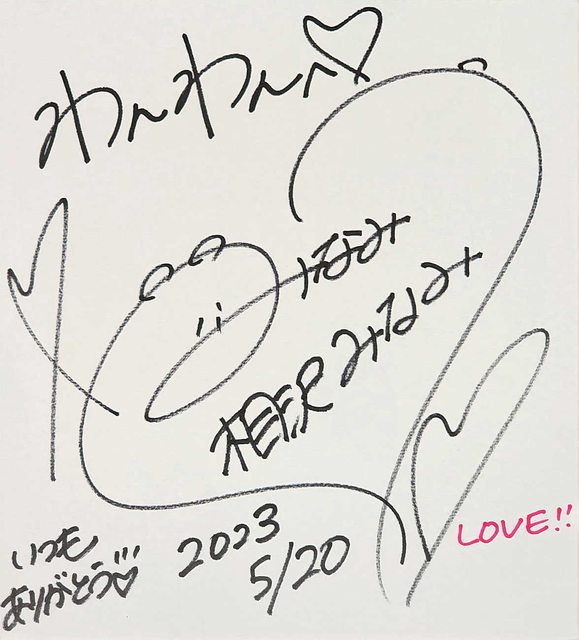 わんわんへ♡
みなみ
相沢みなみ
いつも
ありがとう!!!♡
2023
5/20
LOVE!!